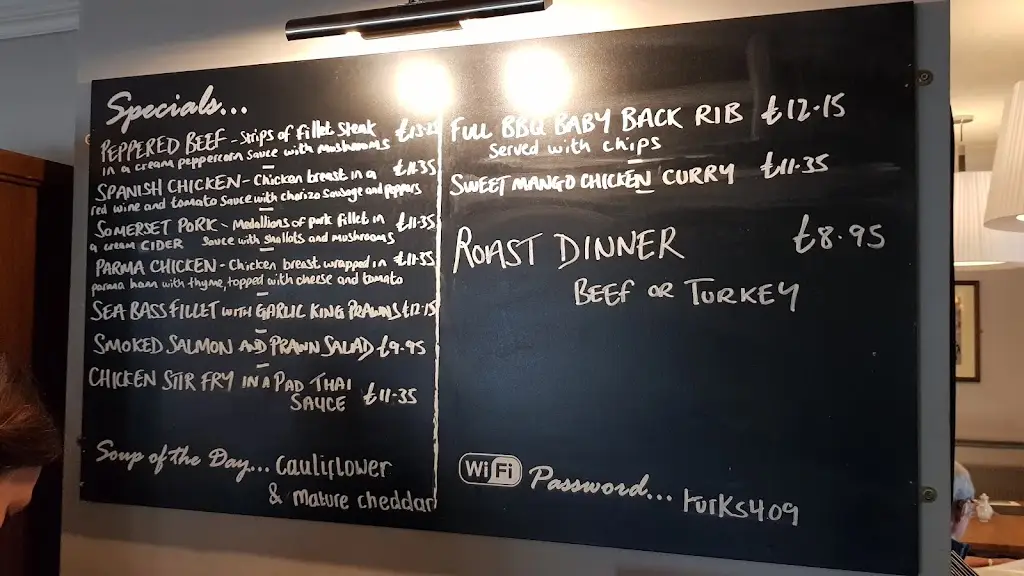 Specials...
PEPPERED BEEF - Strips of fillet Steak
in a cream peppercorn sauce with mushrooms
SPANISH CHICKEN - Chicken breast in a £11.35
red wine and tomato sauce with chorizo sausage and peppers
SOMERSET PORK - Medallions of pork fillet in £11.35
a cream CIDER sauce with shallots and mushrooms
PARMA CHICKEN - Chicken breast wrapped in £11.35
parma ham with thyme, topped with cheese and tomato
SEA BASS FILLET WITH GARLIC KING PRAWNS £12.15
SMOKED SALMON AND PRAWN SALAD £9.95
CHICKEN STIR FRY IN A PAD THAI
SAUCE £11.35
Soup of the Day... Cauliflower
& mature cheddar
FULL BBQ BABY BACK RIB £12.15
Served with chips
SWEET MANGO CHICKEN CURRY £11.35
ROAST DINNER £8.95
BEEF OR TURKEY
WiFi Password... turks409